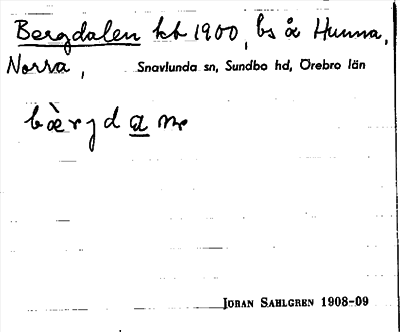 Bergdalen kt 1900, bs å Hunna,
Norra, Snavlunda sn, Sundbo hd, Örebro län
bærjdan
JÖRAN SAHLGREN 1908-09